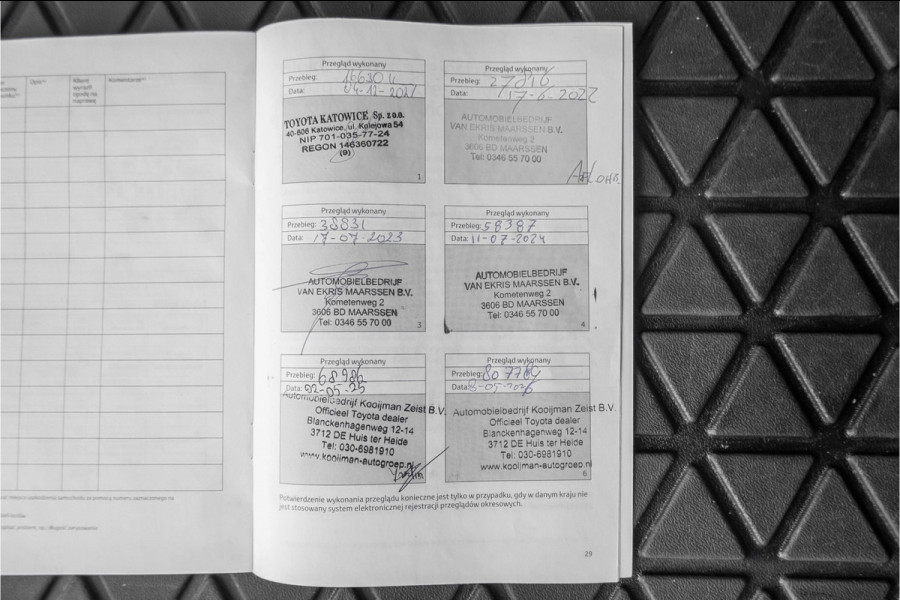 Opis**
Komentarz**
Przegląd wykonany
Przebieg: 16630
Data: 04-12-2021
TOYOTA KATOWICE Sp. z o.o.
40-606 Katowice, ul. Kolejowa 54
NIP 701-035-77-24
REGON 146360722
(9)
1
Przegląd wykonany
Przebieg: 27816
Data: 17-6-2022
AUTOMOBIELBEDRIJF
VAN EKRIS MAARSSEN B.V.
Kometenweg 2
3606 BD MAARSSEN
Tel: 0346 55 70 00
Przegląd wykonany
Przebieg: 38831
Data: 17-07-2023
AUTOMOBIELBEDRIJF
VAN EKRIS MAARSSEN B.V.
Kometenweg 2
3608 BD MAARSSEN
Tel: 0346 55 70 00
3
Przegląd wykonany
Przebieg: 58387
Data: 11-07-2024
AUTOMOBIELBEDRIJF
VAN EKRIS MAARSSEN B.V.
Kometenweg 2
3606 BD MAARSSEN
Tel: 0346 55 70 00
4
Przegląd wykonany
Przebieg: 68986
Data: 02-05-25
Automobielbedrijf Kooijman Zeist B.V.
Officieel Toyota dealer
Blanckenhagenweg 12-14
3712 DE Huis ter Heide
Tel: 030-6981910
www.kooijman-autogroep.nl
Przegląd wykonany
Przebieg: 80 7764
Data: 8-05-2026
Automobielbedrijf Kooijman Zeist B.V.
Officieel Toyota dealer
Blanckenhagenweg 12-14
3712 DE Huis ter Heide
Tel: 030-6981910
www.kooijman-autogroep.nl
6
Potwierdzenie wykonania przeglądu konieczne jest tylko w przypadku, gdy w danym kraju nie
jest stosowany system elektronicznej rejestracji przeglądów okresowych.
29